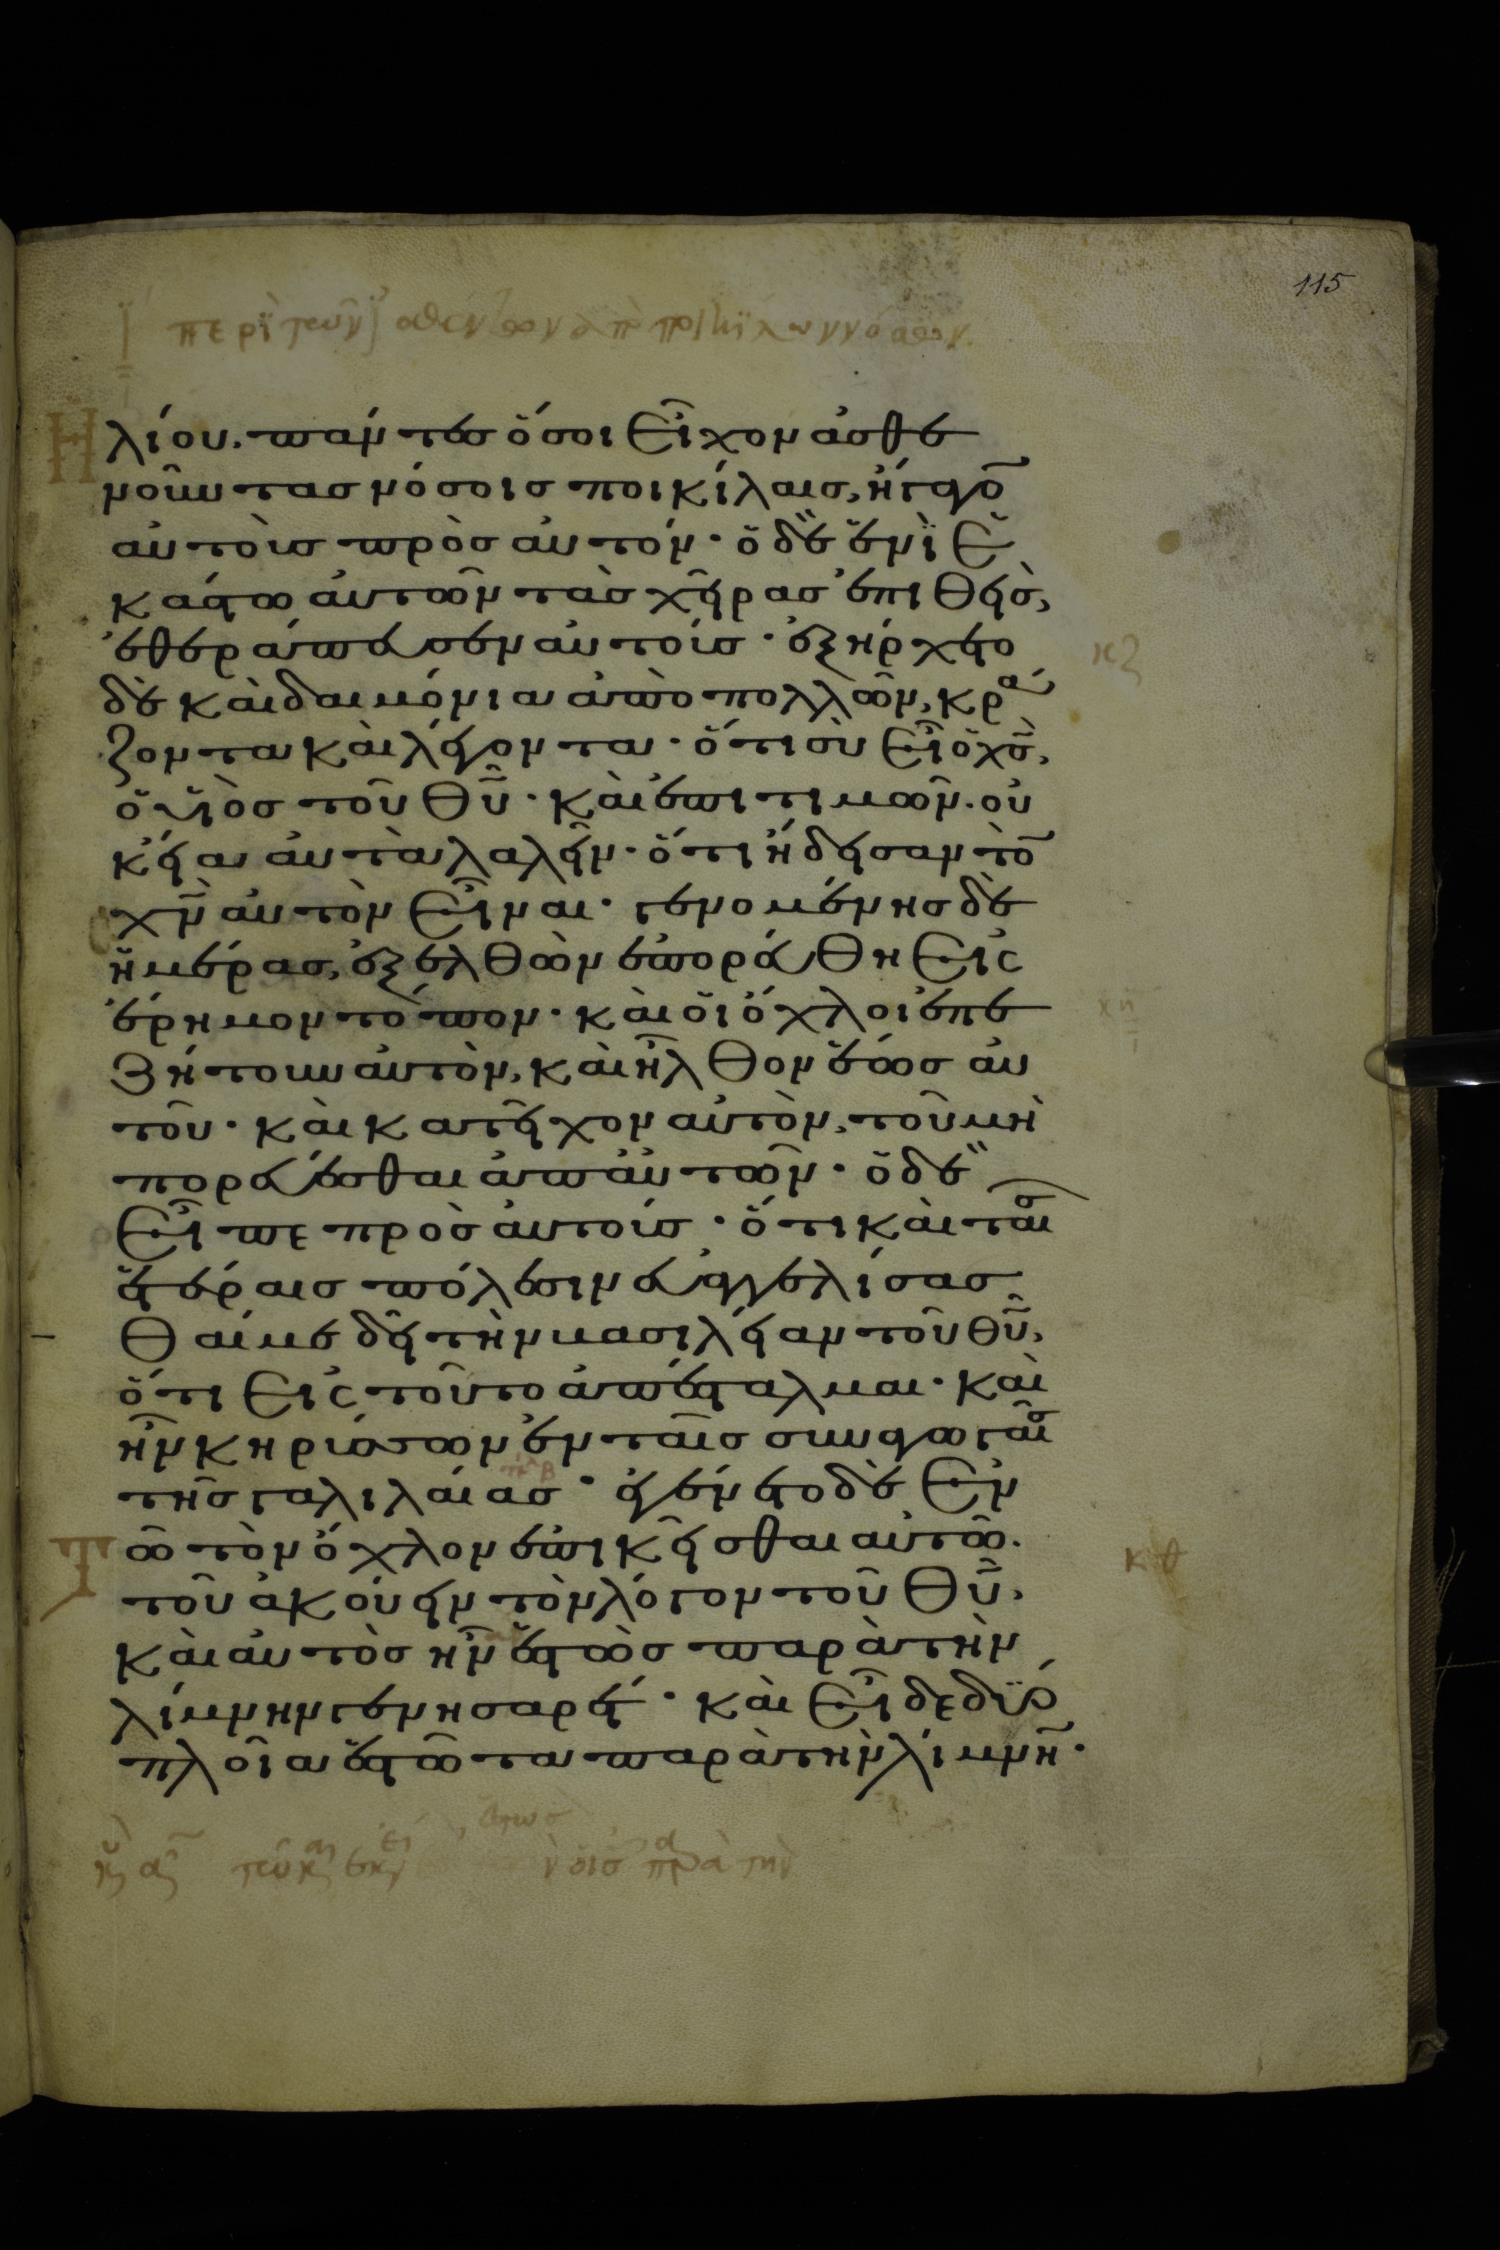 115
περὶ τῶν ἰαθέντων ἀπὸ ποικίλων νόσων
Ηλίου. πάντες ὅσοι εἶχον ἀσθε
νοῦντας νόσοις ποικίλαις, ἤγαγο̄
αὐτοὺς πρὸς αὐτόν· ὁ δὲ ἑνὶ ἑ
κάστω αὐτῶν τὰς χεῖρας ἐπιθεὶς,
ἐθεράπευσεν αὐτούς· ἐξήρχετο
δὲ καὶ δαιμόνια ἀπὸ πολλῶν, κρά
ζοντα καὶ λέγοντα· ὅτι σὺ εἶ ὁ χς̄,
ὁ υἱὸς τοῦ θῦ· καὶ ἐπιτιμῶν. οὐ
κ εἴα αὐτὰ λαλεῖν· ὅτι ἤδεισαν τὸ̄
χν̄ αὐτὸν εἶναι· γενομένης δὲ
ἡμέρας, ἐξελθὼν ἐπορεύθη εἰς
ἔρημον τόπον· καὶ οἱ ὄχλοι ἐπε
ζήτουν αὐτὸν, καὶ ἦλθον ἕως αὐ
τοῦ· καὶ κατεῖχον αὐτὸν, τοῦ μὴ
πορεύεσθαι ἀπ αὐτῶν· ὁ δὲ
εἶπε πρὸς αὐτούς· ὅτι καὶ ταῖς
ἑτέραις πόλεσιν εὐαγγελίσασ
θαί με δεῖ τὴν βασιλείαν τοῦ θῦ,
ὅτι εἰς τοῦτο ἀπέσταλμαι· καὶ
ἦν κηρύσσων ἐν ταῖς συναγωγαῖς
τῆς γαλιλαίας· ἐγένετο δὲ ἐν
Τῶ τὸν ὄχλον ἐπικεῖσθαι αὐτῶ.
τοῦ ἀκούειν τὸν λόγον τοῦ θῦ,
καὶ αὐτὸς ἦν ἑστὼς παρὰ τὴν
λίμνην γενησαρέτ· καὶ εἶδε δύο
πλοῖα ἑστῶτα παρὰ τὴν λίμνη̄·
κζ
κη
κθ